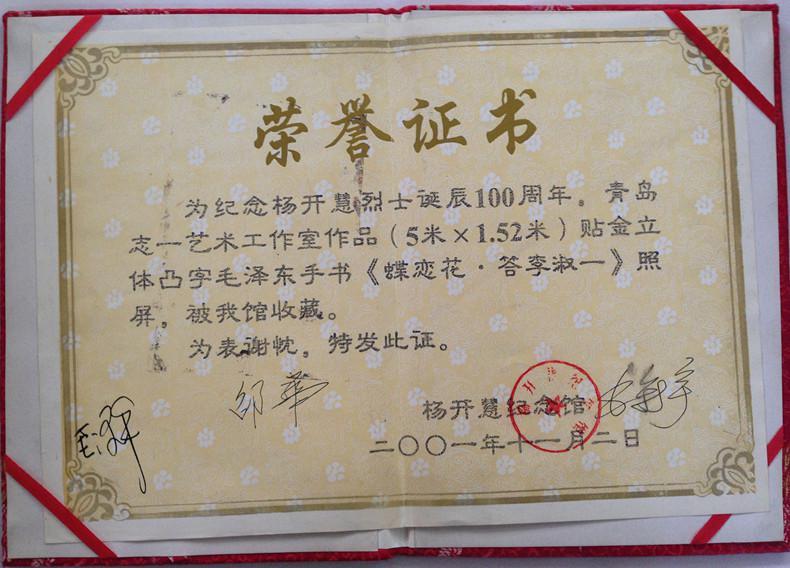 荣誉证书
为纪念杨开慧烈士诞辰100周年，青岛
志一艺术工作室作品（5米×1.52米）贴金立
体凸字毛泽东手书《蝶恋花·答李淑一》照
屏，被我馆收藏。
为表谢忱，特发此证。
邵华
杨开慧纪念馆
二〇〇一年十一月二日